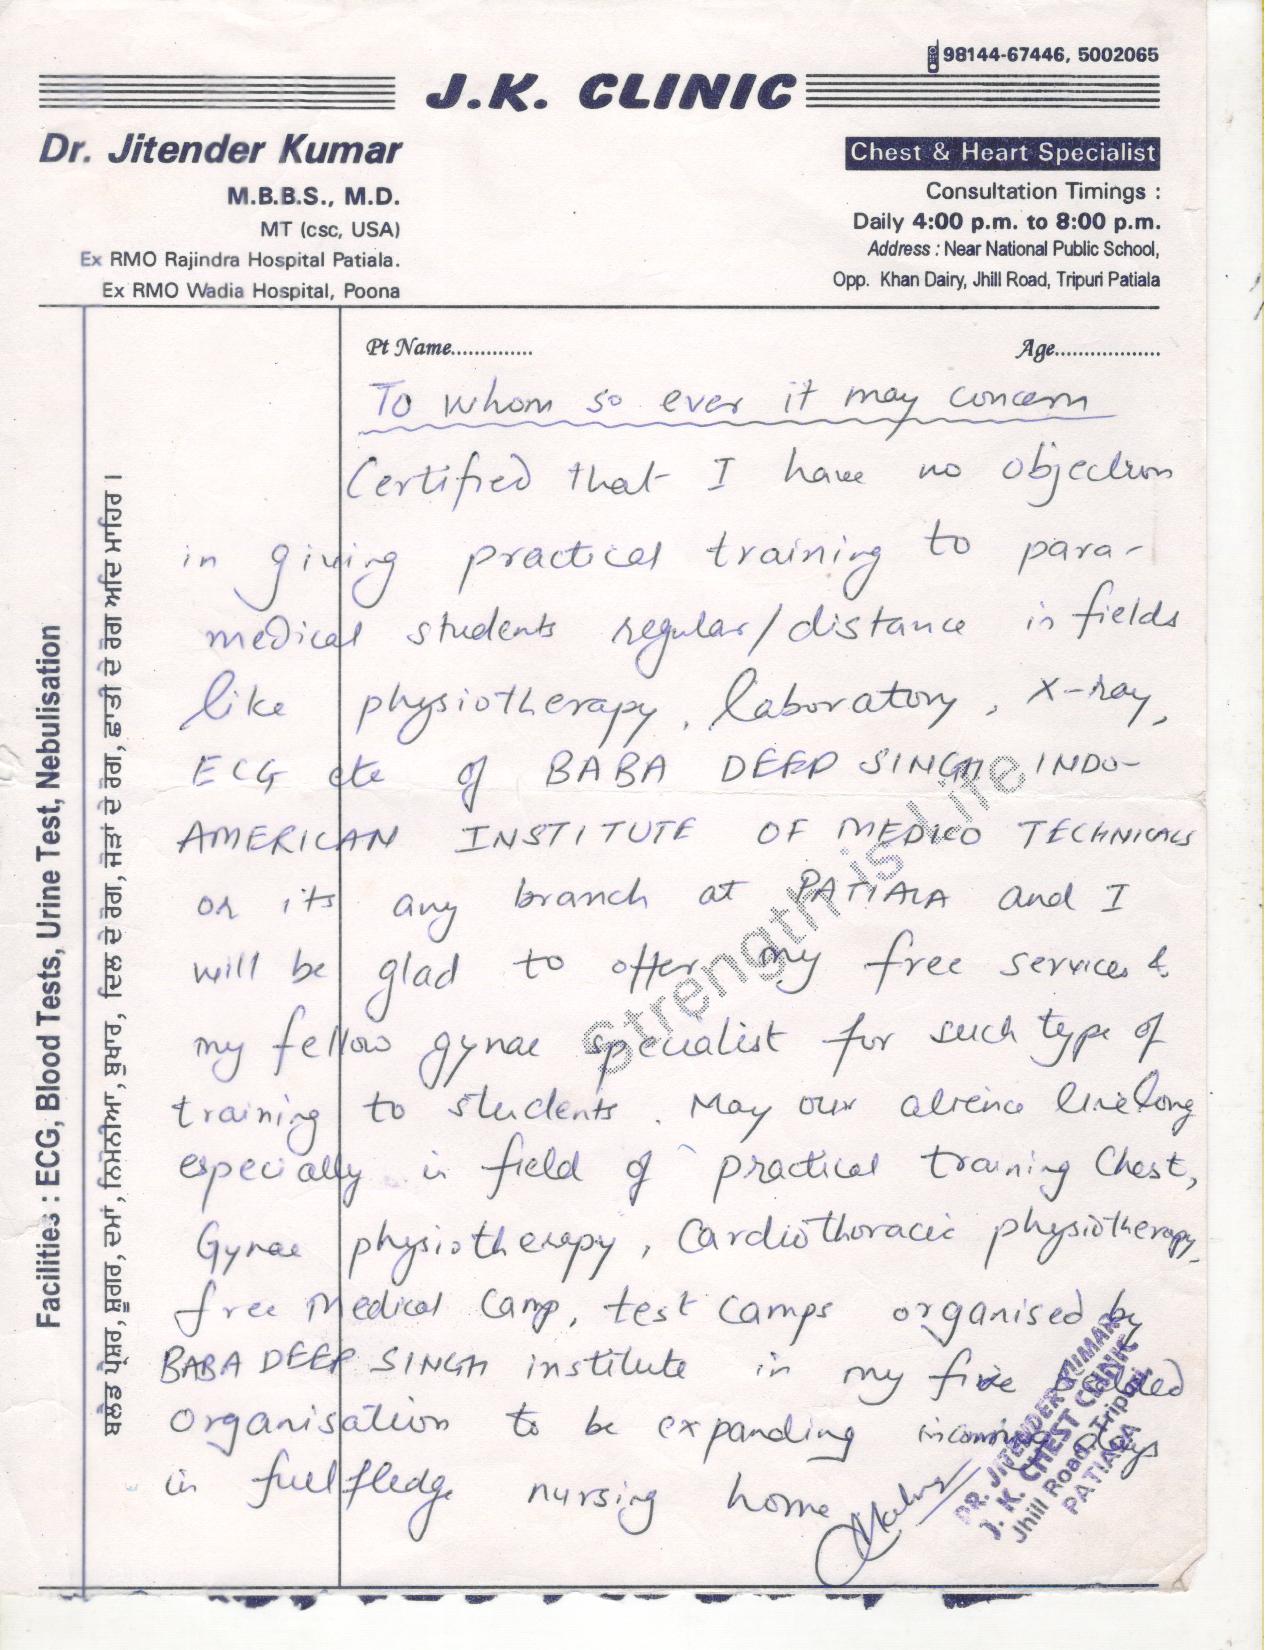 98144-67446, 5002065
J.K. CLINIC
Dr. Jitender Kumar
M.B.B.S., M.D.
MT (csc, USA)
Ex RMO Rajindra Hospital Patiala.
Ex RMO Wadia Hospital, Poona
Chest & Heart Specialist
Consultation Timings :
Daily 4:00 p.m. to 8:00 p.m.
Address : Near National Public School,
Opp. Khan Dairy, Jhill Road, Tripuri Patiala
Facilities : ECG, Blood Tests, Urine Test, Nebulisation
ਬਲੱਡ ਪ੍ਰੈਸ਼ਰ, ਸ਼ੂਗਰ, ਦਮਾਂ, ਨਿਮੋਨੀਆ, ਬੁਖਾਰ, ਦਿਲ ਦੇ ਰੋਗ, ਜੋੜਾਂ ਦੇ ਰੋਗ, ਛਾਤੀ ਦੇ ਰੋਗ ਆਦਿ ਮਾਹਿਰ।
Pt Name..............
Age..................
To whom so ever it may concern
Certified that I have no objection
in giving practical training to para-
medical students regular/distance in fields
like physiotherapy, laboratory, X-ray,
ECG etc of BABA DEEP SINGH INDO-
AMERICAN INSTITUTE OF MEDICO TECHNICALS
or its any branch at PATIALA and I
will be glad to offer my free services &
my fellow gynae specialist for such type of
training to students. May our alience livelong
especially in field of practical training Chest,
Gynae physiotherapy, Cardiothoracic physiotherapy,
free Medical Camp, test camps organised by
BABA DEEP SINGH institute in my five bedded
organisation to be expanding incoming days
in full fledge nursing home
Strength is Life
DR. JITENDER KUMAR
J. K. CHEST CLINIC
Jhill Road, Tripuri
PATIALA